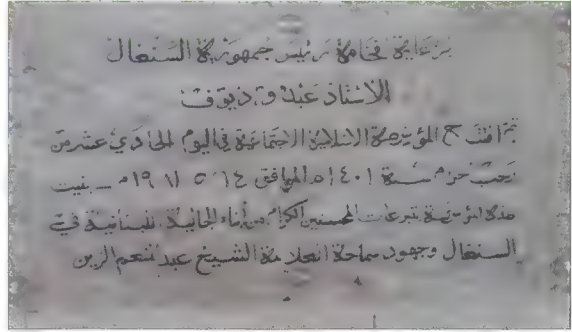 برعاية فخامة رئيس جمهورية السنغال
الاستاذ عبدو ديوف
تم افتتاح المؤسسة الاسلامية الاجتماعية في اليوم الحادي عشر من
رجب من سنة ١٤٠١ه الموافق ١٤ / ٥ / ١٩٨١م - بنيت
هذه المؤسسة بتبرعات المحسنين الكرام من أبناء الجالية اللبنانية في
السنغال وجهود سماحة العلامة الشيخ عبد المنعم الزين